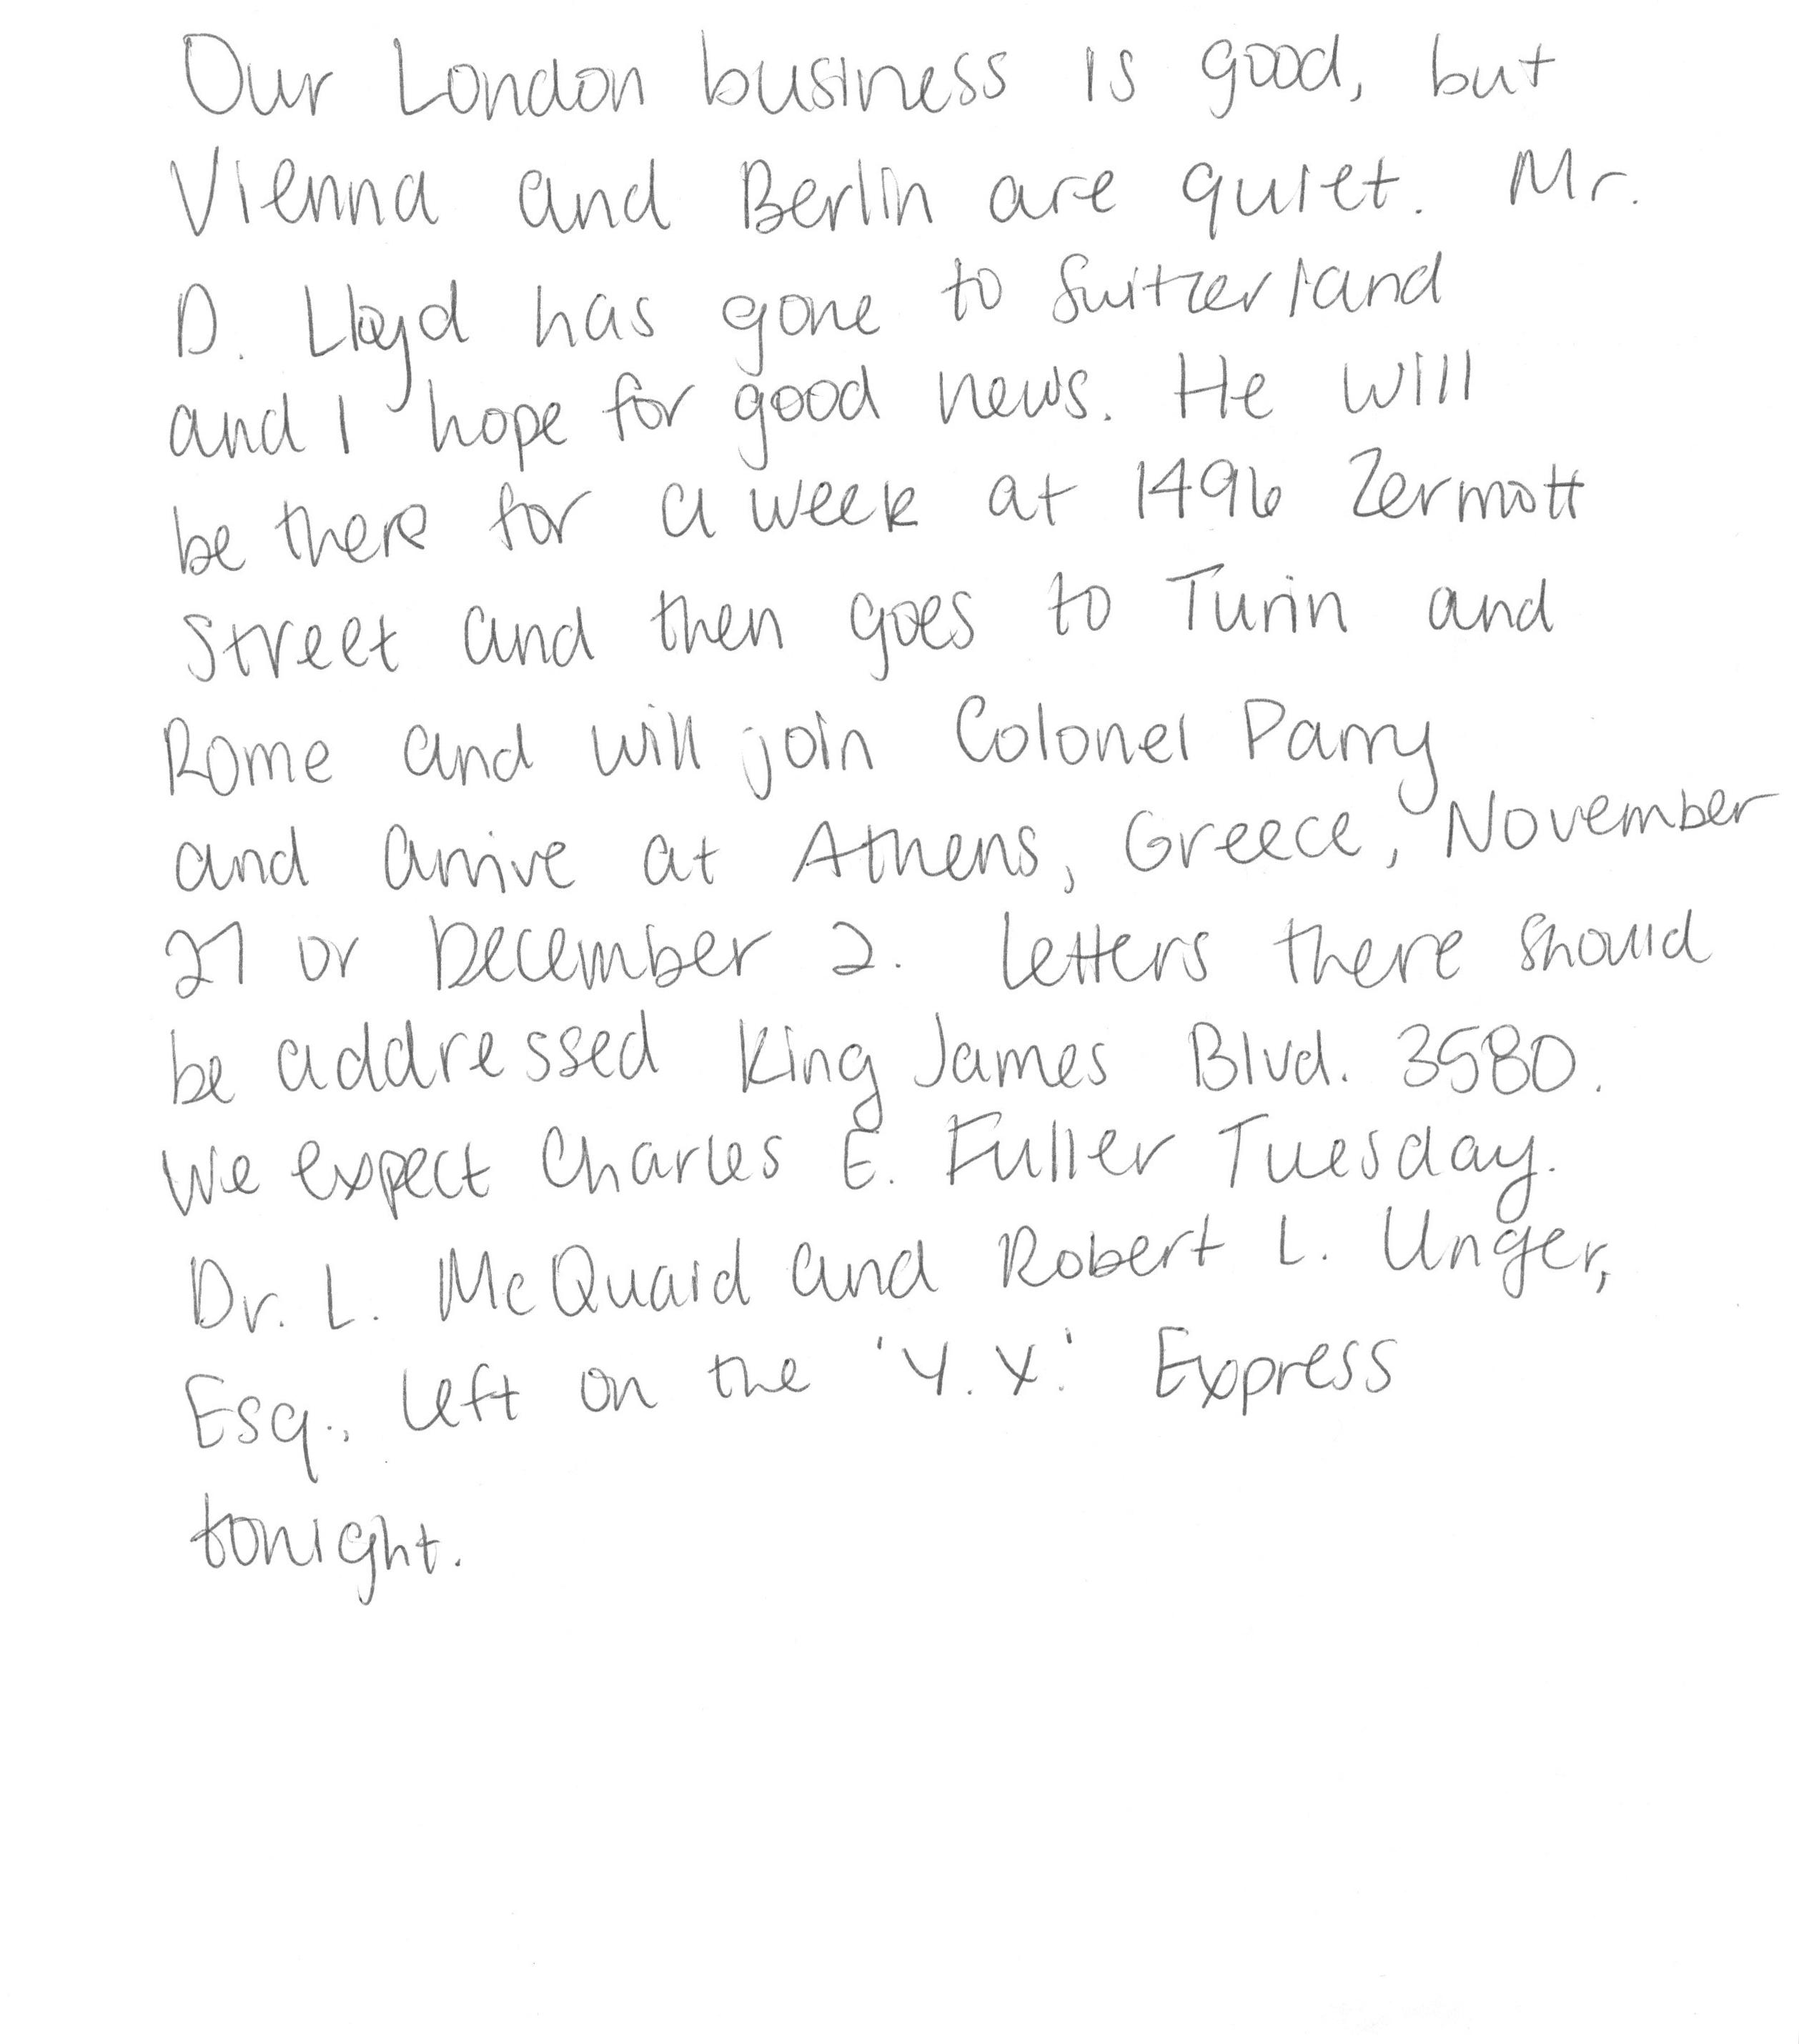 Our London business is good, but
Vienna and Berlin are quiet. Mr.
D. Lloyd has gone to Switzerland
and I hope for good news. He will
be there for a week at 1496 Zermott
Street and then goes to Turin and
Rome and will join Colonel Parry
and arrive at Athens, Greece, November
27 or December 2. Letters there should
be addressed King James Blvd. 3580.
We expect Charles E. Fuller Tuesday.
Dr. L. McQuaid and Robert L. Unger,
Esq., left on the 'Y.X.' Express
tonight.